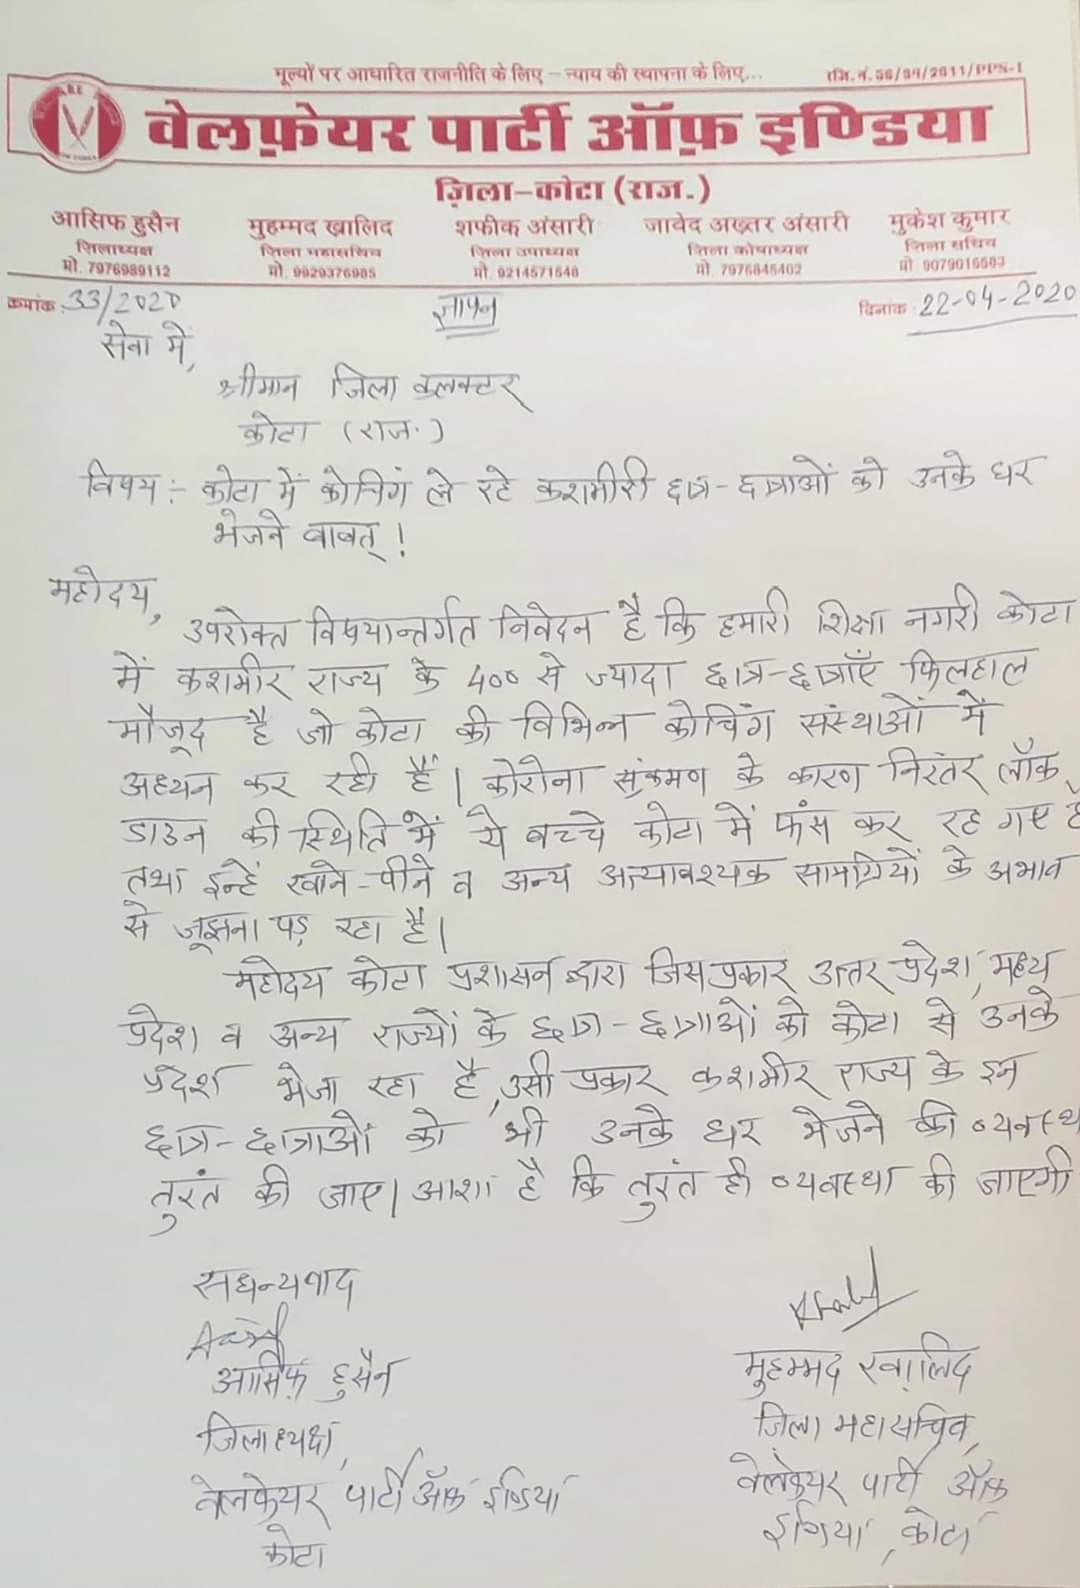 मूल्यों पर आधारित राजनीति के लिए – न्याय की स्थापना के लिए...
रजि. नं. 56/94/2011/PPS-1
वेलफ़ेयर पार्टी ऑफ़ इण्डिया
ज़िला-कोटा (राज.)
आसिफ हुसैन
ज़िलाध्यक्ष
मो. 7976989112
मुहम्मद ख़ालिद
ज़िला महासचिव
मो. 9929376985
शफीक अंसारी
ज़िला उपाध्यक्ष
मो. 9214571548
जावेद अख़्तर अंसारी
ज़िला कोषाध्यक्ष
मो. 7976845402
मुकेश कुमार
ज़िला सचिव
मो. 9079016503
क्रमांक : 33/2020
ज्ञापन
दिनांक : 22-04-2020
सेवा में,
श्रीमान जिला कलक्टर
कोटा (राज.)
विषय :- कोटा में कोचिंग ले रहे कशमीरी छात्र-छात्राओं को उनके घर
भेजने बाबत् !
महोदय,
उपरोक्त विषयान्तर्गत निवेदन है कि हमारी शिक्षा नगरी कोटा
में कशमीर राज्य के 400 से ज्यादा छात्र-छात्राएँ फिलहाल
मौजूद है जो कोटा की विभिन्न कोचिंग संस्थाओं में
अध्यन कर रही हैं। कोरोना संक्रमण के कारण निरंतर लॉक
डाउन की स्थिति में ये बच्चे कोटा में फंस कर रह गए है
तथा इन्हें खाने-पीने व अन्य अत्यावश्यक सामग्रियों के अभाव
से जूझना पड़ रहा है।
महोदय कोटा प्रशासन द्वारा जिस प्रकार उत्तर प्रदेश, मध्य
प्रदेश व अन्य राज्यों के छात्र-छात्राओं को कोटा से उनके
प्रदेश भेजा रहा है, उसी प्रकार कशमीर राज्य के इन
छात्र-छात्राओं को भी उनके घर भेजने की व्यवस्था
तुरंत की जाए। आशा है कि तुरंत ही व्यवस्था की जाएगी
सधन्यवाद
आसिफ़ हुसैन
जिलाध्यक्ष,
वेलफेयर पार्टी ऑफ इण्डिया
कोटा
Khalid
मुहम्मद ख़ालिद
जिला महासचिव,
वेलफेयर पार्टी ऑफ
इण्डिया, कोटा